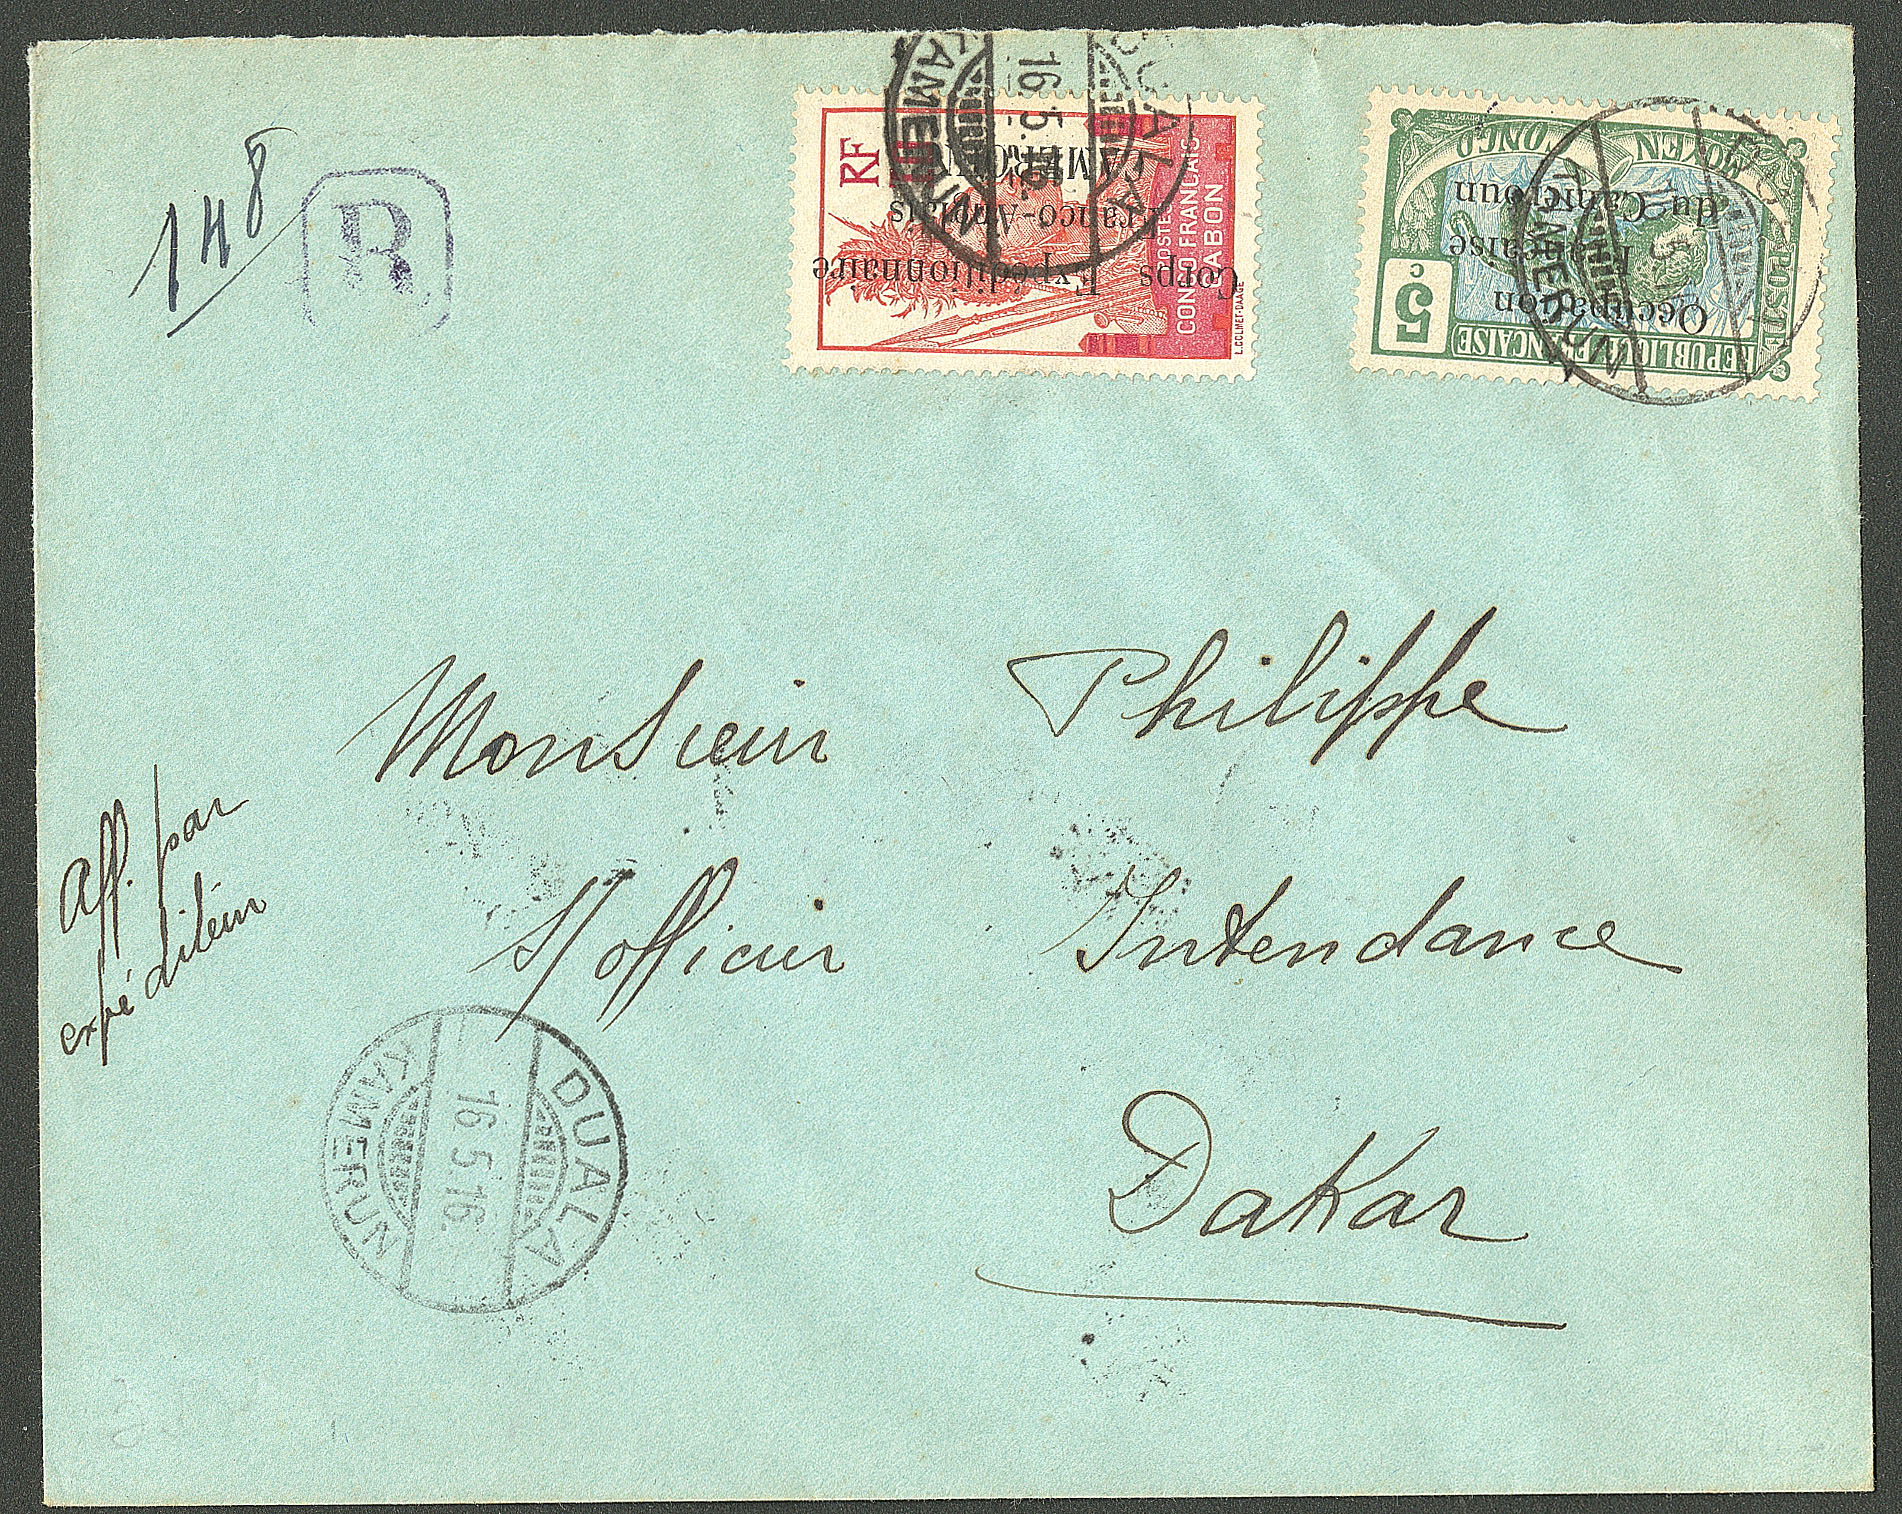 148
R
DUALA
16.5.16.
KAMERUN
RF
POSTES
CONGO FRANCAIS
GABON
L.COLMET-DAAGE
Corps Expéditionnaire
Franco-Anglais
CAMEROUN
MOYEN CONGO
POSTES
RÉPUBLIQUE FRANÇAISE
5 c
Occupation
Française
du Cameroun
KAMERUN
Monsieur Philippe
S/officier Intendance
Dakar
Aff. par
expéditeur
DUALA
16.5.16.
KAMERUN